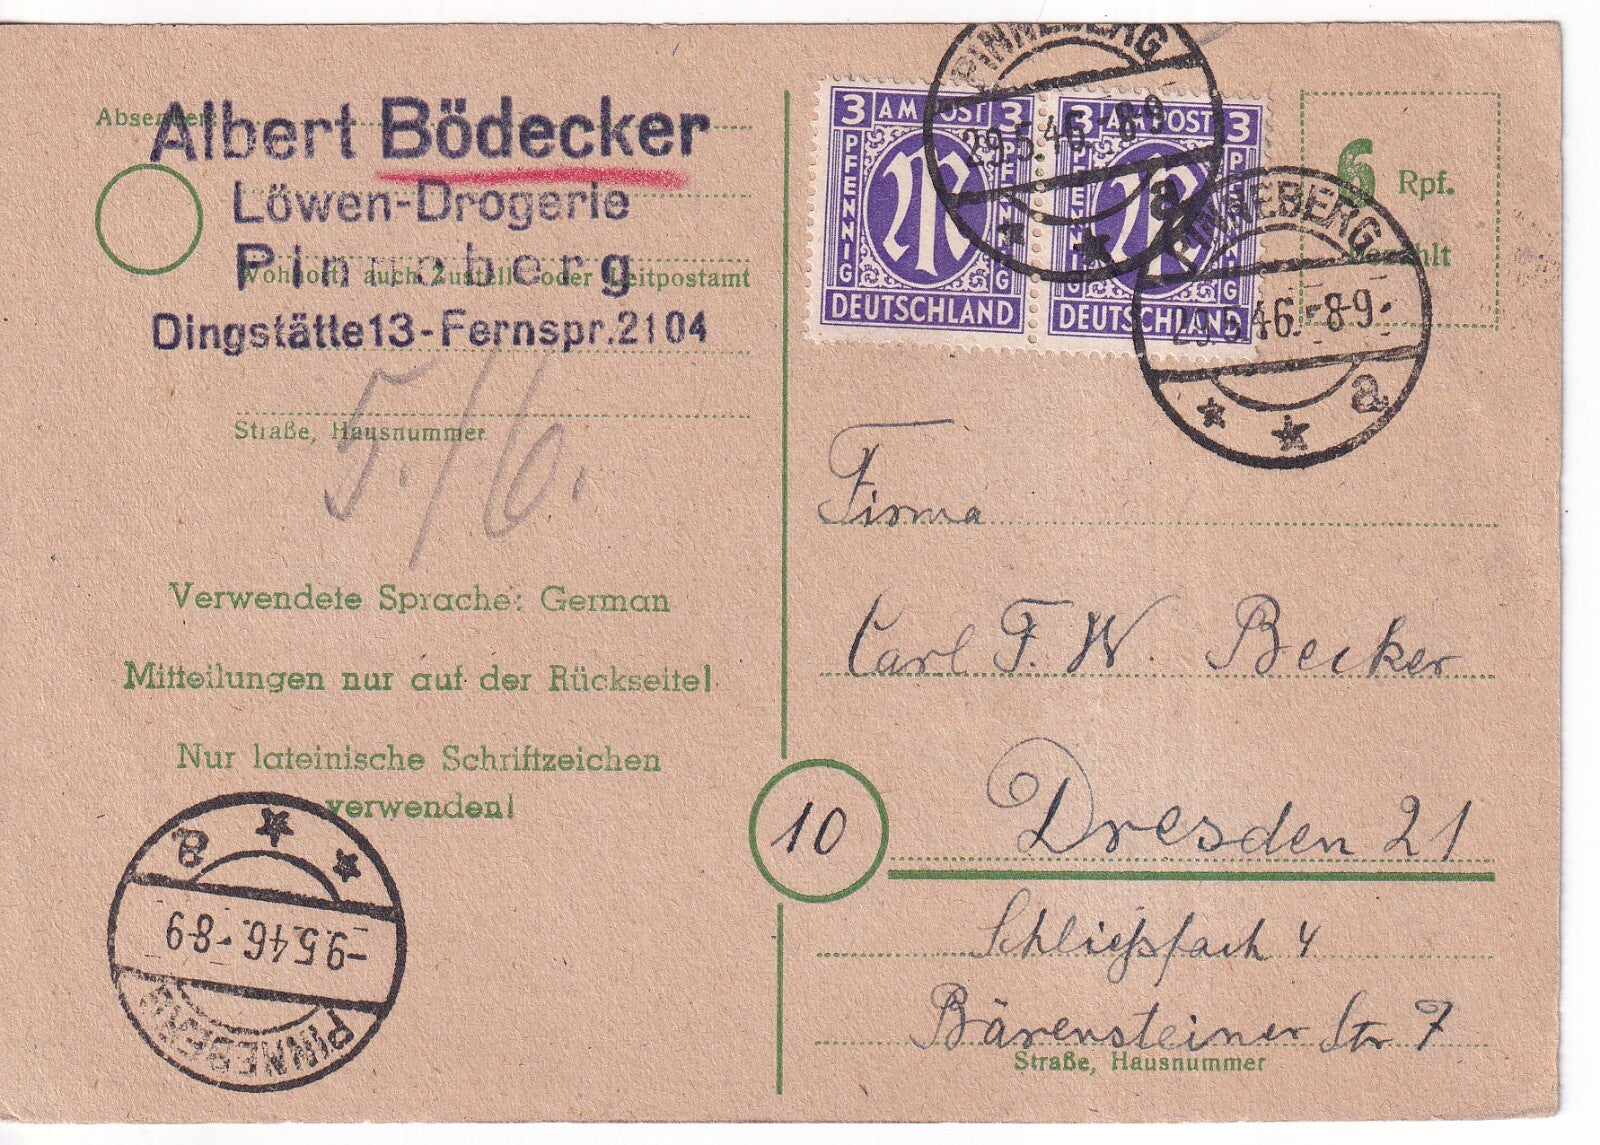 Absender:
Albert Bödecker
Löwen-Drogerie
Pinneberg
Wohnort, auch Zustell- oder Leitpostamt
Dingstätte 13 - Fernspr. 2104
Straße, Hausnummer
5./6.
Verwendete Sprache: German
Mitteilungen nur auf der Rückseite!
Nur lateinische Schriftzeichen
verwenden!
PINNEBERG
-9.5.46.-8-9
a
3 AM POST 3
PFENNIG
PFENNIG
DEUTSCHLAND
3 AM POST 3
PFENNIG
PFENNIG
DEUTSCHLAND
PINNEBERG
29.5.46.-8-9
a
PINNEBERG
29.5.46.-8-9
a
6 Rpf.
bezahlt
Firma
Carl F. W. Becker
10
Dresden 21
Schließfach 4
Bärensteiner Str. 7
Straße, Hausnummer